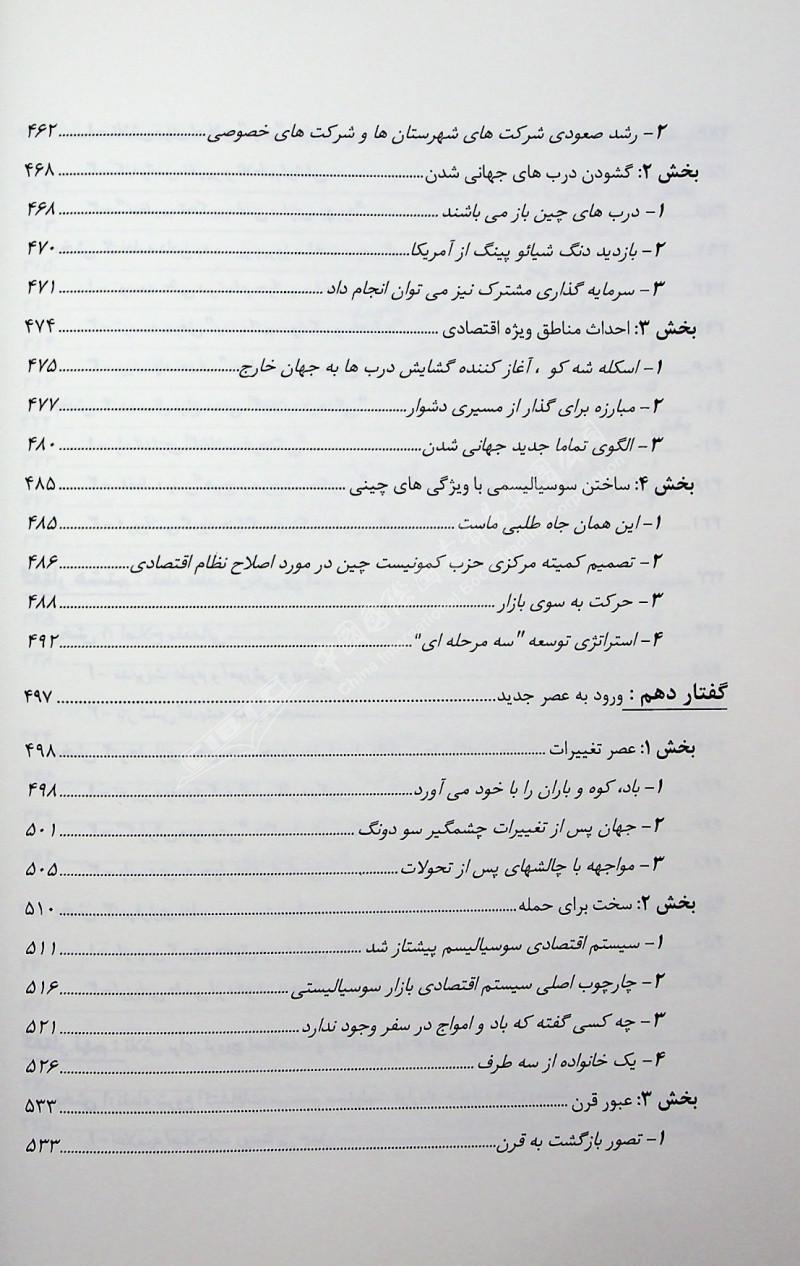 ۲- رشد صعودی شرکت های شهرستان ها و شرکت های خصوصی ........ ۴۶۲
بخش ۲: گشودن درب های جهانی شدن ........ ۴۶۸
۱- درب های چین باز می باشند ........ ۴۶۸
۲- بازدید دنگ شیائو پینگ از آمریکا ........ ۴۷۰
۳- سرمایه گذاری مشترک نیز می توان انجام داد ........ ۴۷۱
بخش ۳: احداث مناطق ویژه اقتصادی ........ ۴۷۴
۱- اسکله شه کو ، آغاز کننده گشایش درب ها به جهان خارج ........ ۴۷۵
۲- مبارزه برای گذار از مسیری دشوار ........ ۴۷۷
۳- الگوی تماما جدید جهانی شدن ........ ۴۸۰
بخش ۴: ساختن سوسیالیسمی با ویژگی های چینی ........ ۴۸۵
۱- این همان جاه طلبی ماست ........ ۴۸۵
۲- تصمیم کمیته مرکزی حزب کمونیست چین در مورد اصلاح نظام اقتصادی ........ ۴۸۶
۳- حرکت به سوی بازار ........ ۴۸۸
۴- استراتژی توسعه "سه مرحله ای" ........ ۴۹۲
گفتار دهم : ورود به عصر جدید ........ ۴۹۷
بخش ۱: عصر تغییرات ........ ۴۹۸
۱- باد، کوه و باران را با خود می آورد ........ ۴۹۸
۲- جهان پس از تغییرات چشمگیر سو دونگ ........ ۵۰۱
۳- مواجهه با چالشهای پس از تحولات ........ ۵۰۵
بخش ۲: سخت برای حمله ........ ۵۱۰
۱- سیستم اقتصادی سوسیالیسم پیشتاز شد ........ ۵۱۱
۲- چارچوب اصلی سیستم اقتصادی بازار سوسیالیستی ........ ۵۱۶
۳- چه کسی گفته که باد و امواج در سفر وجود ندارد ........ ۵۲۱
۴- یک خانواده از سه طرف ........ ۵۲۶
بخش ۳: عبور قرن ........ ۵۳۳
۱- تصور بازگشت به قرن ........ ۵۳۳